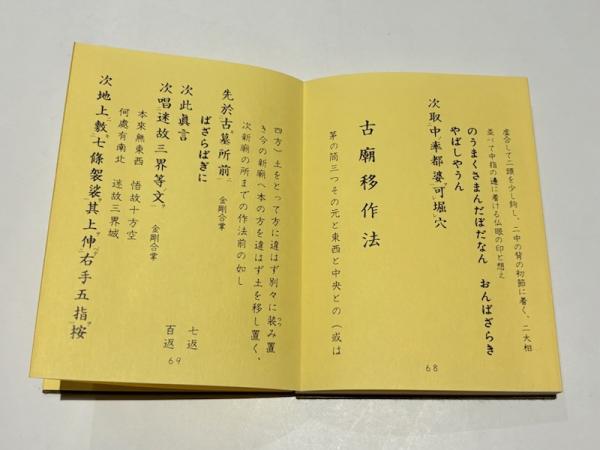 虚合して二頭を少し鉤し、二中の背の初節に着く、二大相
並べて中指の邊に着ける仏眼の印と想え
のうまくさまんだぼだなん　おんばざらき
やばしやうん
次取中率都婆可堀穴
古廟移作法
茅の筒三つその元と東西と中央との（或は
68
四方）土をとって方に違はず別々に装み置
き今の新廟へ本の方を違はず土を移し置く、
次新廟の所までの作法前の如し
先於古墓所前　金剛合掌
ばざらばぎに　七返
次此眞言　百返
次唱迷故三界等文　金剛合掌
本來無東西　悟故十方空
何處有南北　迷故三界城
次地上敷七條袈裟其上伸右手五指按
69